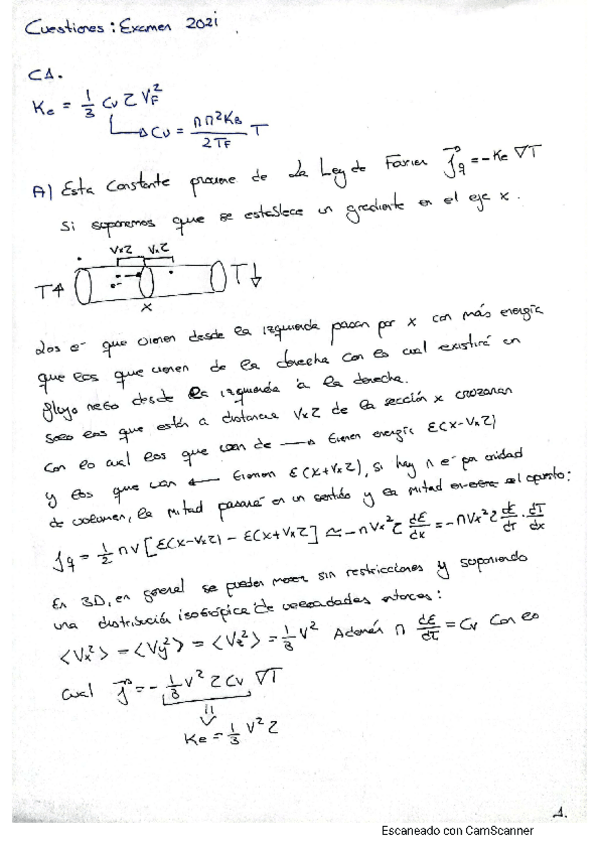 Cuestiones: Examen 2021.
C1.
Ke = 1/3 Cv τ V_F²
↳ Cv = nπ²K_B / 2T_F T
A) Esta constante proviene de la Ley de Fourier J⃗q = -Ke ∇T
Si suponemos que se establece un gradiente en el eje x.
Vxτ Vxτ
T↑ T↓
x
Los e⁻ que vienen desde la izquierda pasan por x con más energía
que los que vienen de la derecha con lo cual existirá un
flujo neto desde la izquierda a la derecha.
Solo los que estén a distancia Vxτ de la sección x cruzaran
con lo cual los que van de → tienen energía ε(x-Vxτ)
y los que van ← tienen ε(x+Vxτ), si hay n e⁻ por unidad
de volumen, la mitad pasará en un sentido y la mitad en el opuesto:
Jq = 1/2 nv [ε(x-Vxτ) - ε(x+Vxτ)] ≈ -nVx²τ dε/dx = -nVx²τ dε/dT · dT/dx
En 3D, en general se pueden mover sin restricciones y suponiendo
una distribución isotrópica de velocidades entonces:
<Vx²> = <Vy²> = <Vz²> = 1/3 V² Además n dε/dT = Cv Con lo
cual J⃗ = -1/3 V² τ Cv ∇T
Ke = 1/3 V² τ
1.
Escaneado con CamScanner